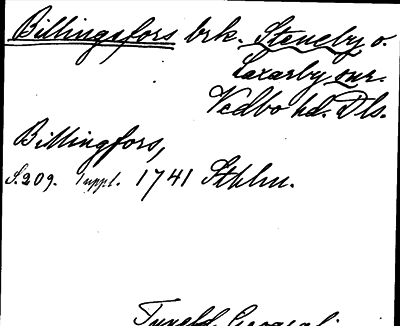 Billingsfors brk. Steneby o.
Laxarby snr.
Vedbo hd. Dls.
Billingfors,
S. 209. Suppl. 1741 Sthlm.
Tuneld, Geografi